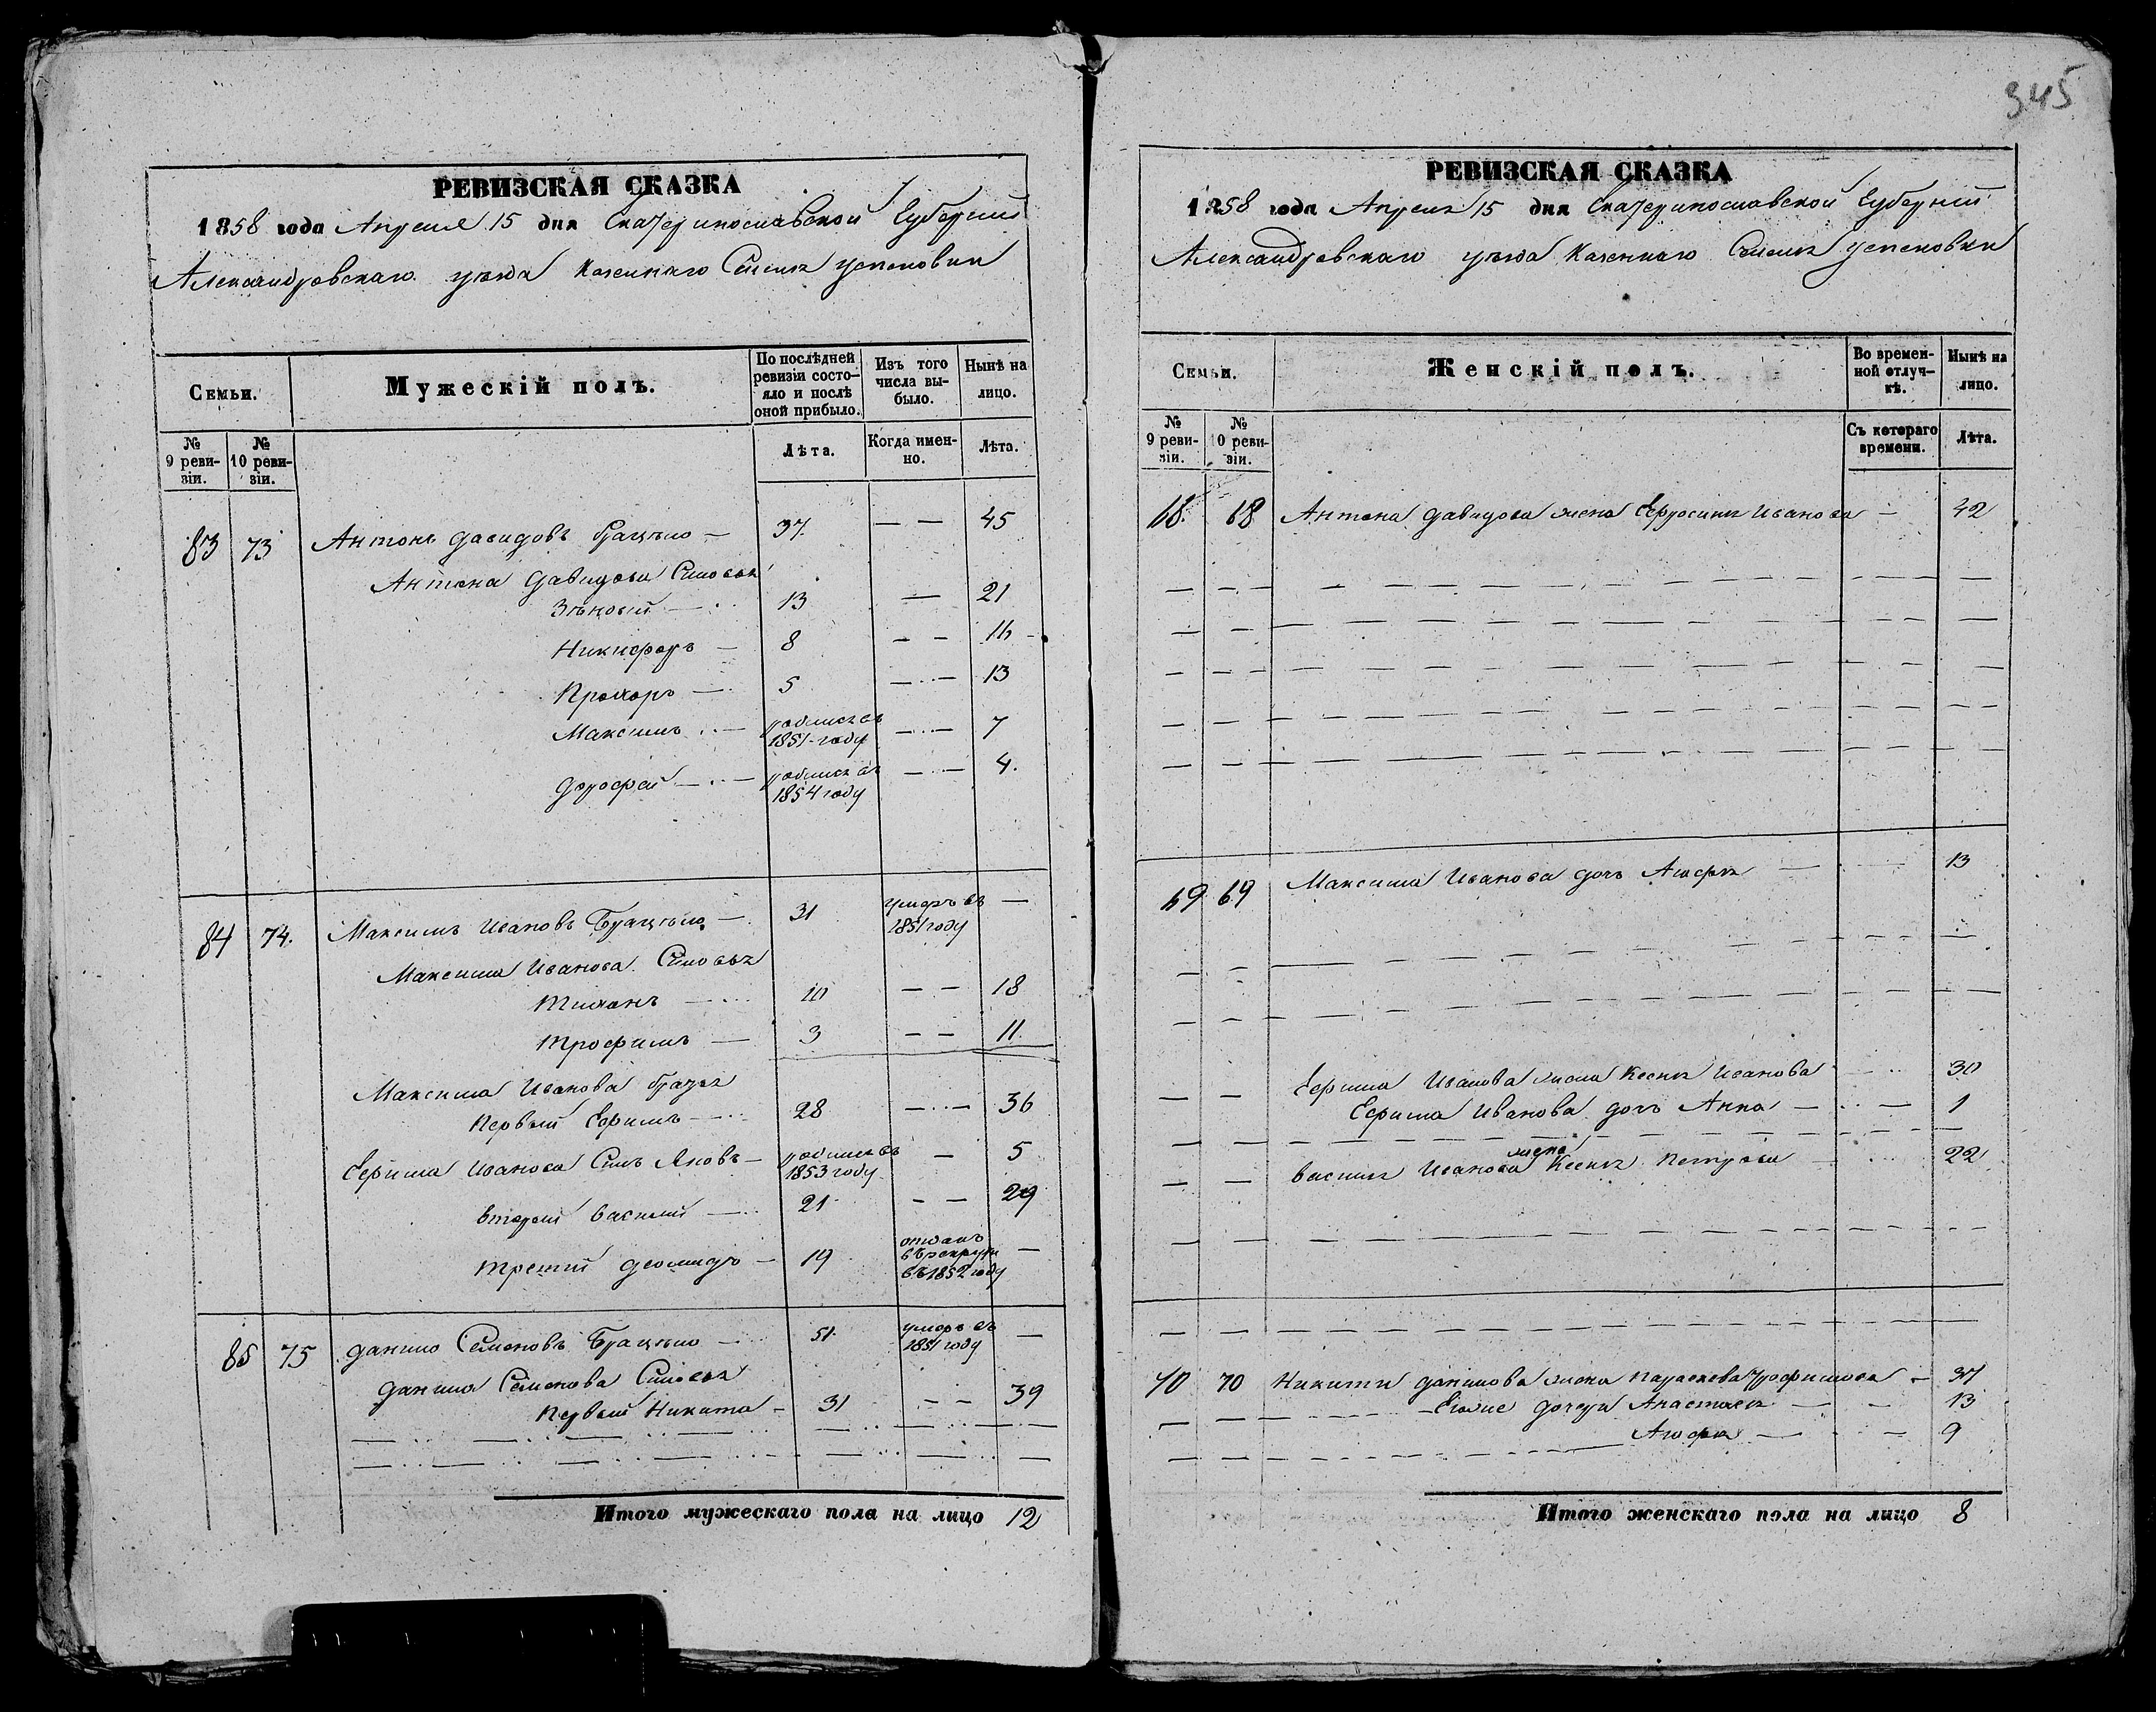 345
РЕВИЗСКАЯ СКАЗКА
1858 года Апреля 15 дня Екатеринославской Губернии
Александровскаго уезда Казеннаго Селенія Успеновки
Семьи.
Мужескій полъ.
По послѣдней ревизіи состо-
яло и послѣ
оной прибыло.
Изъ того
числа вы-
было.
Нынѣ на
лицо.
№
9 реви-
зіи.
№
10 реви-
зіи.
Лѣта.
Когда имен-
но.
Лѣта.
83 73 Антонъ Давидовъ Брацыло — 37. — — 45
Антона Давидова Сыновья
Зѣновій — 13 — 21
Никифоръ — 8 — — 16
Прохоръ — 5 — — 13
Максимъ — родился въ 1851 году — — 7
Дорофей — родился въ 1854 году — — 4.
84 74. Максимъ Ивановъ Брацыло — 31 умеръ въ 1851 году —
Максима Иванова Сыновья
Тихонъ — 10 — — 18
Трофимъ — 3 — — 11.
Максима Иванова братья
Первый Ефимъ — 28 — — 36
Ефима Иванова Сынъ Яковъ — родился въ 1853 году — 5
Второй Василий — 21 — — 29
Третий Деомидъ — 19 отданъ въ рекруты въ 1852 году —
85 75 Данило Семеновъ Брацыло — 51. умеръ въ 1851 году —
Данила Семенова Сыновья
Первый Никита — 31 — — 39
Итого мужескаго пола на лицо 12
РЕВИЗСКАЯ СКАЗКА
1858 года Апреля 15 дня Екатеринославской Губерний
Александровскаго уезда Казеннаго Селенія Успеновки
Семьи.
Женскій полъ.
Во времен-
ной отлуч-
кѣ.
Нынѣ на
лицо.
№
9 реви-
зіи.
№
10 реви-
зіи.
Съ котораго
времени.
Лѣта.
68. 68 Антона Давидова жена Ефросинья Иванова — 42
69 69 Максима Иванова дочь Агафья — 13
Ефима Иванова жена Ксенья Иванова — 30
Ефима Иванова дочь Анна — 1
Василья Иванова жена Ксенья Петрова — 22
70 70 Никиты Данилова жена Параскева Трофимова — 37
Ево же дочери Анастасья — 13
Агафья — 9
Итого женскаго пола на лицо 8